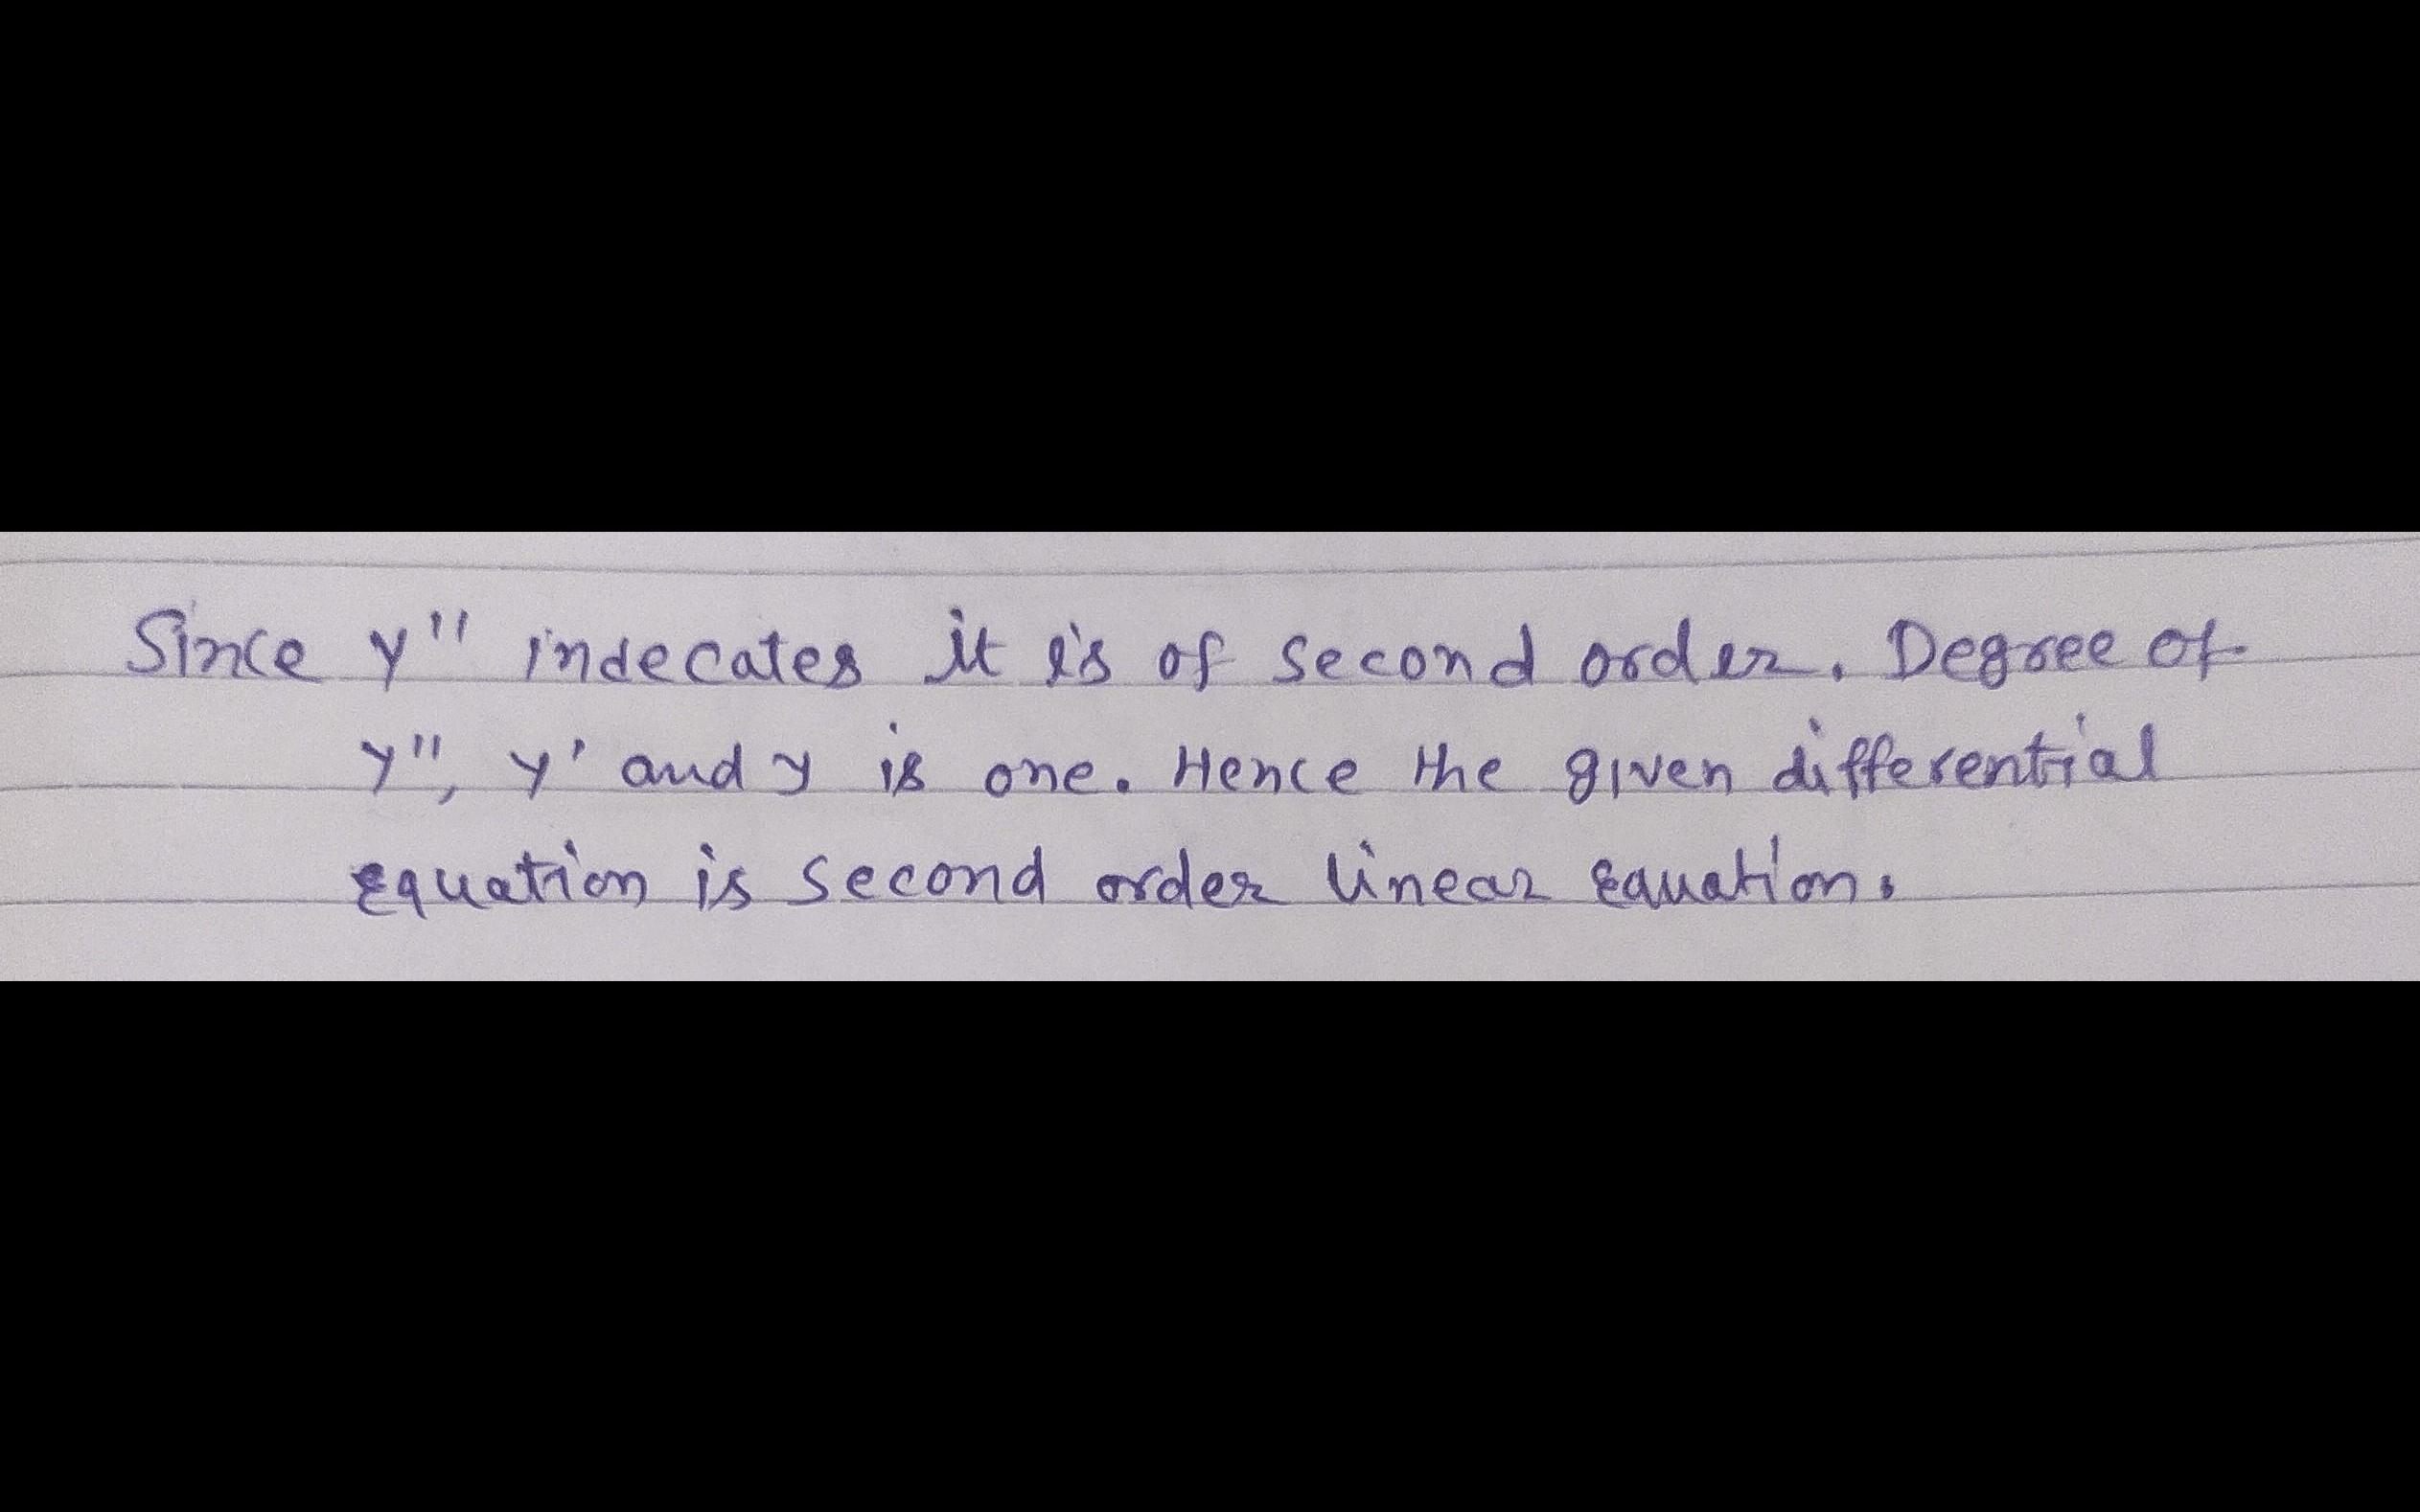 Since y'' indecates it is of second order. Degree of
y'', y' and y is one. Hence the given differential
Equation is second order linear Equation.